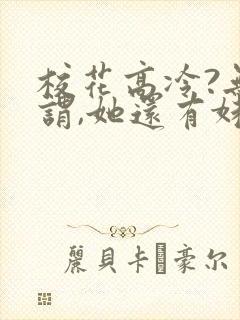 校花高冷?無
謂,她還有妹
麗貝卡�豪尔